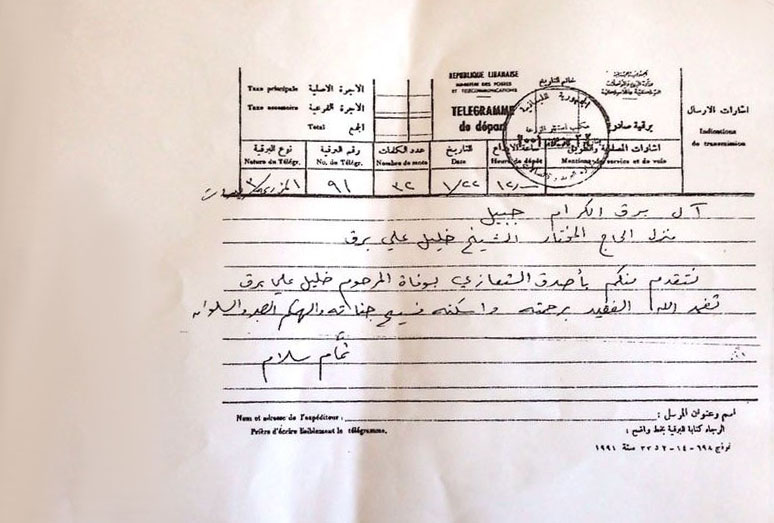 REPUBLIQUE LIBANAISE
MINISTERE DES POSTES
ET TELECOMMUNICATIONS
TELEGRAMME
de départ
خاتم التاريخ
الجمهورية اللبنانية
برقية صادرة
اشارات الارسال
Indications
de transmission
Taxe principale الاجرة الاصلية
Taxe accessoire الاجرة الفرعية
Total الجمع
نوع البرقية رقم البرقية عدد الكلمات التاريخ ساعة الايداع
Nature du Télégr. No. de Télégr. Nombre de mots Date Heure de dépôt Mentions de service et de voie
٩١ ٣٢ ١/٢٢
آل برق الكرام جبيل
منزل الحاج المختار الشيخ خليل علي برق
نتقدم منكم بأصدق التعازي بوفاة المرحوم خليل علي برق
تغمد الله الفقيد برحمته واسكنه فسيح جناته والهمكم الصبر والسلوان
تمّام سلام
Nom et adresse de l'expéditeur : اسم وعنوان المرسل :
Prière d'écrire lisiblement le télégramme. الرجاء كتابة البرقية بخط واضح :
سنة ١٩٩١